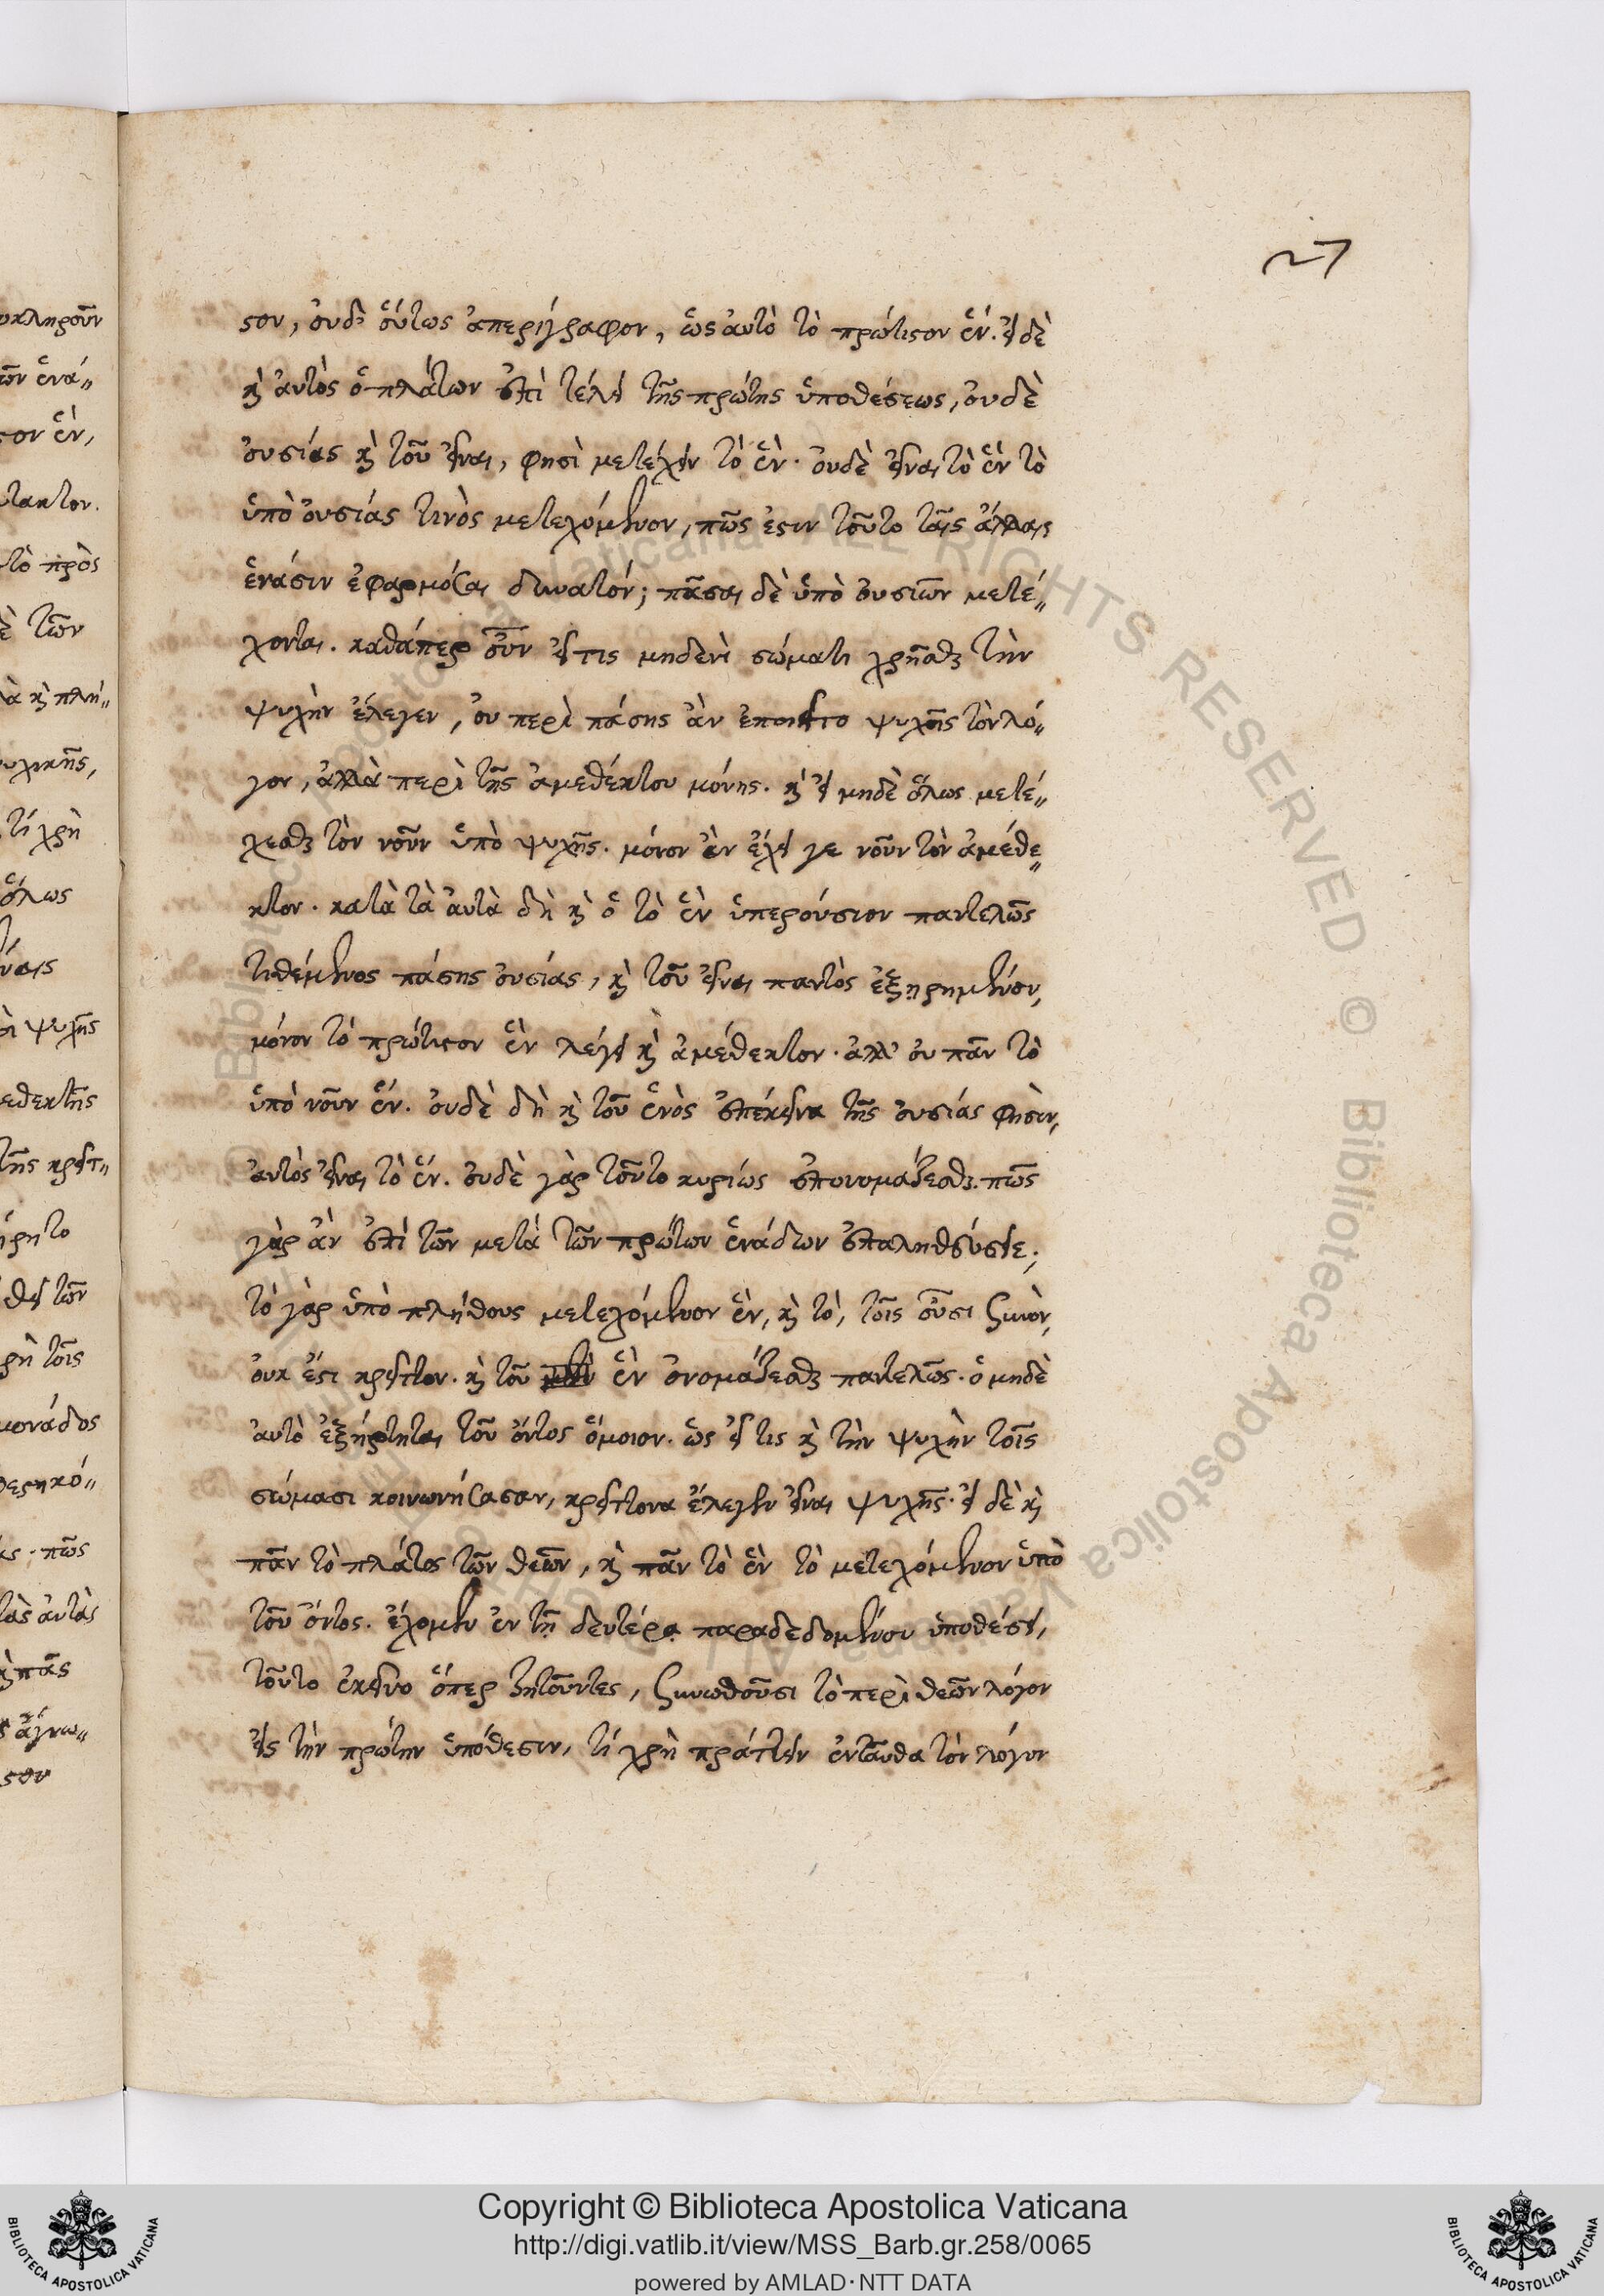 υκληροῦν
ῶν ἑνά„
ϛον ἓν,
τακτον.
τὸ πρὸς
ὲ τῶν
ὰ κὶ πλή„
υχικῆς,
τί χρὴ
ὅλως
ὶ ψυχῆς
εθεκτῆς
τῆς κρείτ„
ήρητο
θει τῶν
ρὴ τοῖς
μονάδος
ας. πῶς
τὰς αὐτὰς
κὶ πᾶς
ϛον
27
ϛον, οὐδ' οὕτως ἀπερίγραφον, ὡς αὐτὸ τὸ πρώτιϛον ἕν. εἰ δὲ
κὶ αὐτὸς ὁ πλάτων ἐπὶ τέλει τῆς πρώτης ὑποθέσεως, οὐδὲ
οὐσίας κὶ τοῦ εἶναι, φησὶ μετέχειν τὸ ἓν. οὐδὲ εἶναι τὸ ἓν τὸ
ὑπὸ οὐσίας τινὸς μετεχόμενον, πῶς ἐϛιν τοῦτο ταῖς ἄλλαις
ἑνάσιν ἐφαρμόσαι δυνατόν; πᾶσαι δὲ ὑπὸ οὐσιῶν μετέ„
χονται. καθάπερ οὖν εἴ τις μηδενὶ σώματι χρῆσθαι τὴν
ψυχὴν ἔλεγεν, οὐ περὶ πάσης ἂν ἐποιεῖτο ψυχῆς τὸν λό„
γον, ἀλλὰ περὶ τῆς ἀμεθέκτου μόνης. κὶ εἰ μηδὲ ὅλως μετέ„
χεσθαι τὸν νοῦν ὑπὸ ψυχῆς. μόνον ἂν ἔχει γε νοῦν τὸν ἀμέθε„
κτον. κατὰ τὰ αὐτὰ δὴ κὶ ὁ τὸ ἓν ὑπερούσιον παντελῶς
τιθέμενος πάσης οὐσίας, κὶ τοῦ εἶναι παντὸς ἐξῃρημένου,
μόνον τὸ πρώτιϛον ἓν λέγει κὶ ἀμέθεκτον. ἀλλ' οὐ πᾶν τὸ
ὑπὸ νοῦν ἕν. οὐδὲ δὴ κὶ τοῦ ἑνὸς ἐπέκεινα τῆς οὐσίας φησὶν,
αὐτὸς εἶναι τὸ ἕν. οὐδὲ γὰρ τοῦτο κυρίως ἐπονομάζεσθαι. πῶς
γὰρ ἂν ἐπὶ τῶν μετὰ τῶν πρώτων ἑνάδων ἐπαληθεύσειε;
τὸ γὰρ ὑπὸ πλήθους μετεχόμενον ἓν, κὶ τὸ, τοῖς οὖσι συνὸν,
οὐκ ἔϛι κρεῖττον. κὶ τοῦ ἓν ὀνομάζεσθαι παντελῶς. ὁ μηδὲ
αὐτὸ ἐξήρτηται τοῦ ὄντος ὅμοιον. ὡς εἴ τις κὶ τὴν ψυχὴν τοῖς
σώμασι κοινωνήσασαν, κρείττονα ἔλεγεν εἶναι ψυχῆς. εἰ δὲ κὶ
πᾶν τὸ πλάτος τῶν θεῶν, κὶ πᾶν τὸ ἓν τὸ μετεχόμενον ὑπὸ
τοῦ ὄντος. ἔχομεν ἐν τῇ δευτέρᾳ παραδεδομένου ὑποθέσει,
τοῦτο ἐκεῖνο ὅπερ ζητοῦντες, συνωθοῦσι τὸ περὶ θεῶν λόγον
εἰς τὴν πρώτην ὑπόθεσιν, τί χρὴ πράττειν ἐνταῦθα τὸν λόγον
© Biblioteca Apostolica Vaticana ALL RIGHTS RESERVED © Biblioteca Apostolica Vaticana
Copyright © Biblioteca Apostolica Vaticana
http://digi.vatlib.it/view/MSS_Barb.gr.258/0065
powered by AMLAD·NTT DATA
BIBLIOTECA APOSTOLICA VATICANA
BIBLIOTECA APOSTOLICA VATICANA